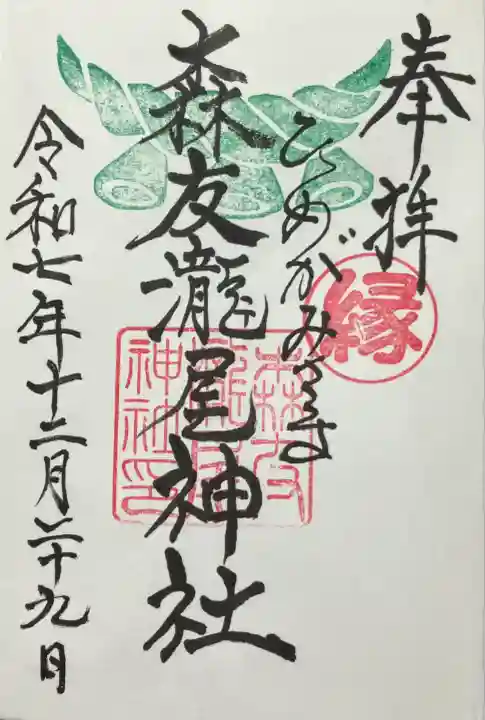 奉拝
縁
ひめがみ
森友瀧尾神社
森友
瀧尾
神社印
令和七年十二月二十九日